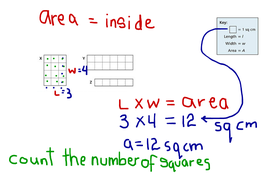 area = inside
Key:
= 1 sq cm
Length = l
Width = w
Area = A
X
Y
w=4
Z
L=3
L x w = area
3 x 4 = 12
sq cm
a=12 sq cm
count the number of squares